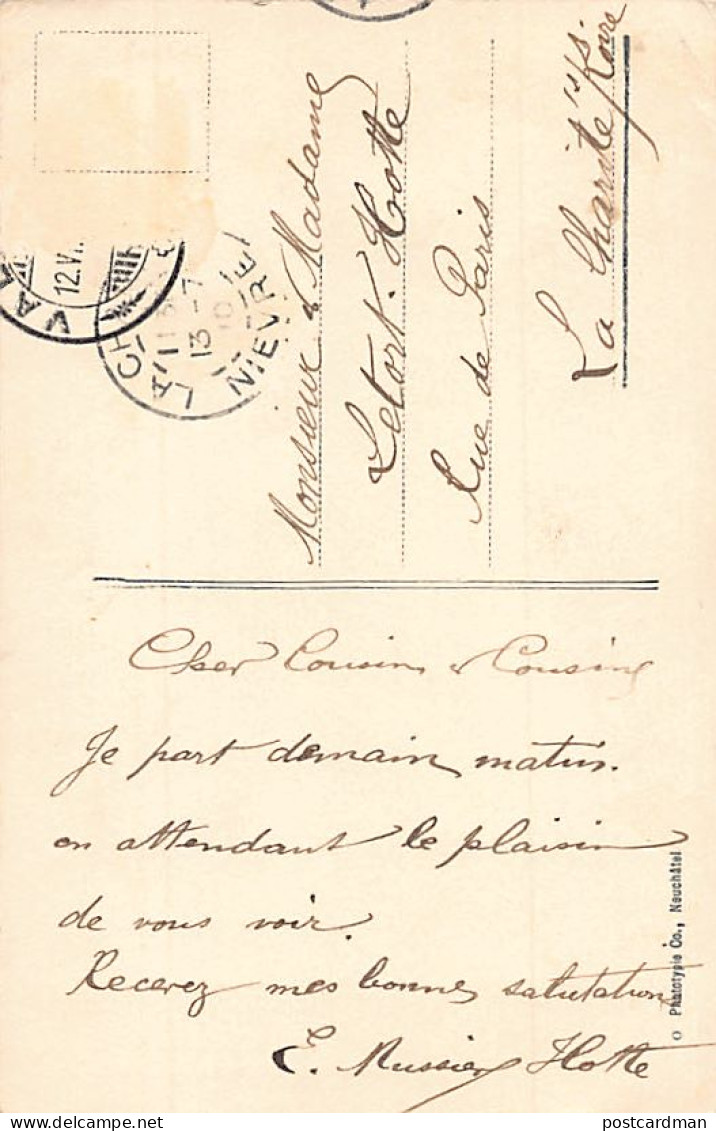 Monsieur & Madame
Letort. Hotte
Rue de Paris
La Charité s/s. Loire
VAL
12.VI
LA CH
11
13 - 7
10
NIEVRE
Cher Cousin & Cousine
Je part demain matin.
en attendant le plaisir
de vous voir.
Recevez mes bonnes salutations
E. Mussier Hotte
Phototypie Co., Neuchâtel
postcardman